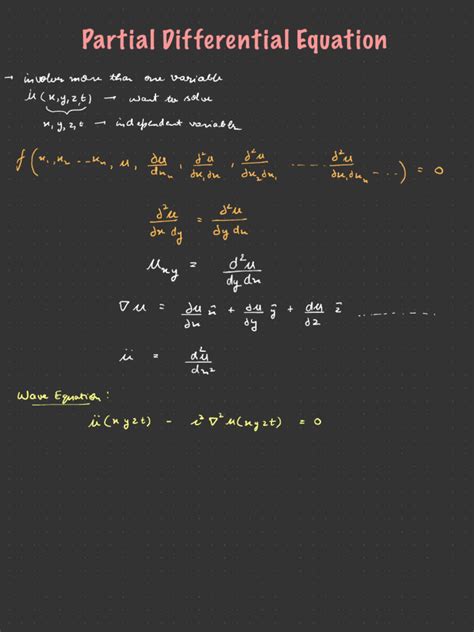 Partial Differential Equation
→ involves more than one variable
u(x,y,z,t) → want to solve
x,y,z,t → independent variables
f(x₁,x₂ ... xₙ, u, ∂u/dxₙ, ∂²u/∂x₁∂x₁, ∂²u/∂x₂∂x₁, ..... ∂²u/∂x₁∂xₙ ...) = 0
∂²u/∂x dy = ∂²u/∂y dx
u_xy = d²u/dy dx
∇u = ∂u/∂x x̂ + ∂u/∂y ŷ + du/∂z ẑ ..........
ü = d²u/dx²
Wave Equation:
ü(xyzt) - c²∇²u(xyzt) = 0